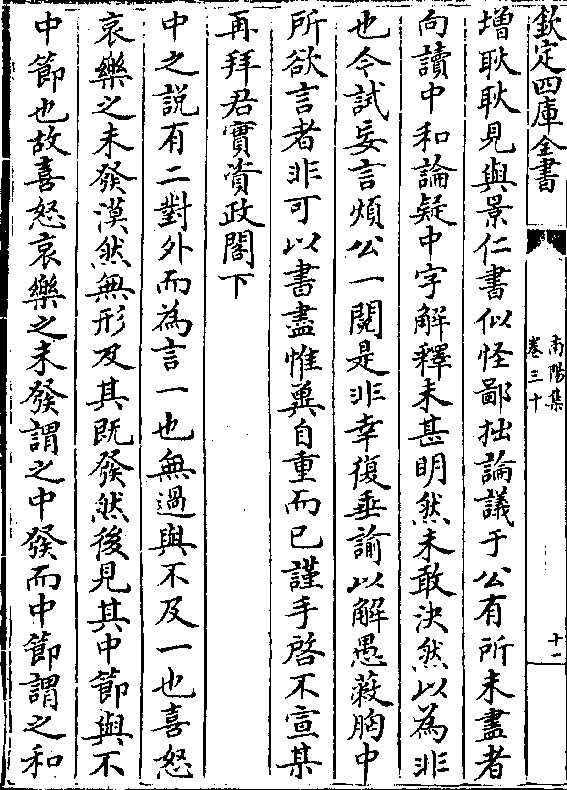 欽定四庫全書
南陽集
卷三十
十一
増耿耿見與景仁書似怪鄙拙論議于公有所未盡者
向讀中和論疑中字解釋未甚明然未敢決然以為非
也今試妄言煩公一閱是非幸復垂諭以解愚蔽胸中
所欲言者非可以書盡惟冀自重而已謹手啓不宣某
再拜君實資政閣下
中之說有二對外而為言一也無過與不及一也喜怒
哀樂之未發漠然無形及其既發然後見其中節與不
中節也故喜怒哀樂之未發謂之中發而中節謂之和